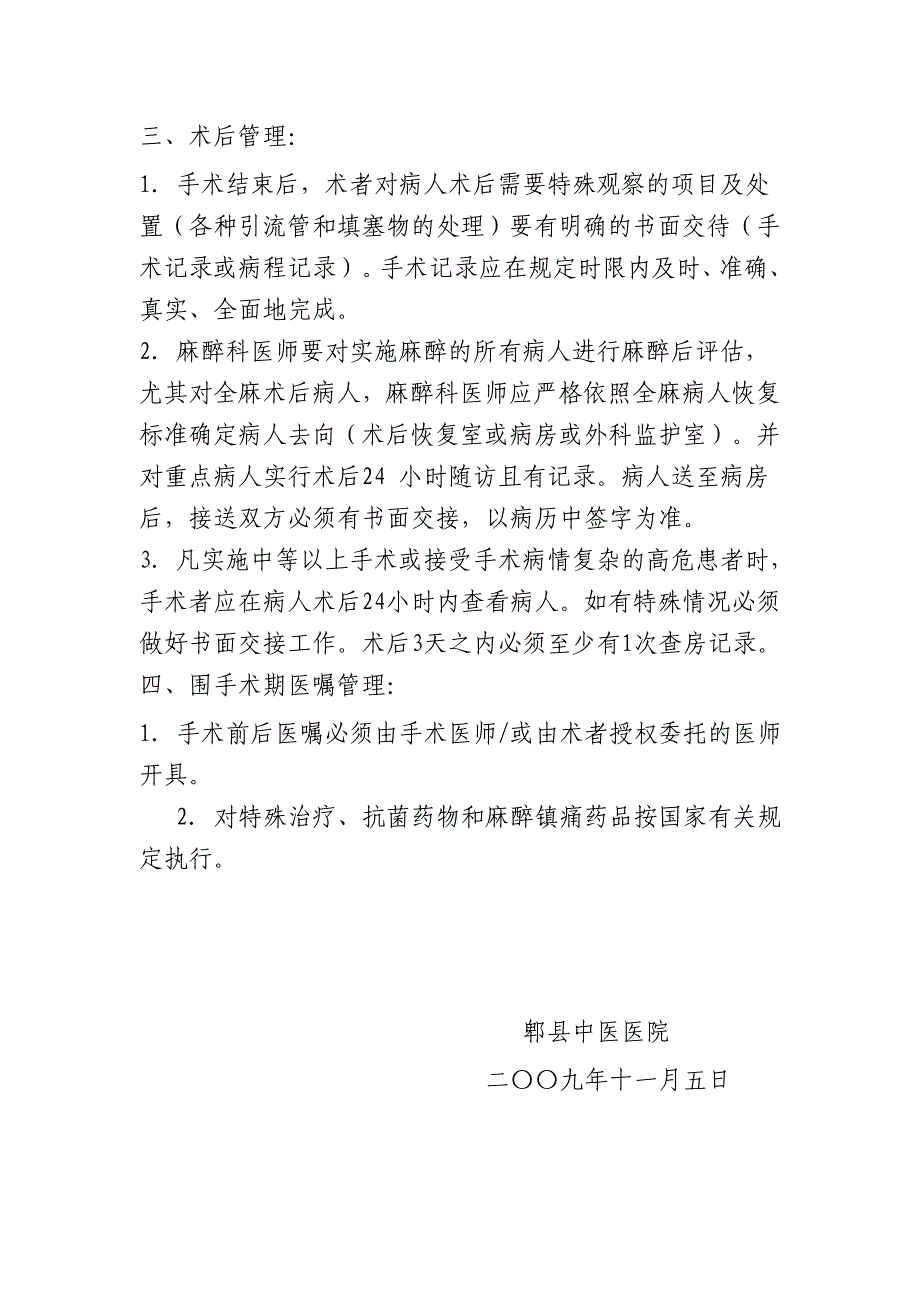 三、术后管理：
1. 手术结束后，术者对病人术后需要特殊观察的项目及处
置（各种引流管和填塞物的处理）要有明确的书面交待（手
术记录或病程记录）。手术记录应在规定时限内及时、准确、
真实、全面地完成。
2. 麻醉科医师要对实施麻醉的所有病人进行麻醉后评估，
尤其对全麻术后病人，麻醉科医师应严格依照全麻病人恢复
标准确定病人去向（术后恢复室或病房或外科监护室）。并
对重点病人实行术后24 小时随访且有记录。病人送至病房
后，接送双方必须有书面交接，以病历中签字为准。
3. 凡实施中等以上手术或接受手术病情复杂的高危患者时，
手术者应在病人术后24小时内查看病人。如有特殊情况必须
做好书面交接工作。术后3天之内必须至少有1次查房记录。
四、围手术期医嘱管理：
1. 手术前后医嘱必须由手术医师/或由术者授权委托的医师
开具。
2. 对特殊治疗、抗菌药物和麻醉镇痛药品按国家有关规
定执行。
郫县中医医院
二〇〇九年十一月五日